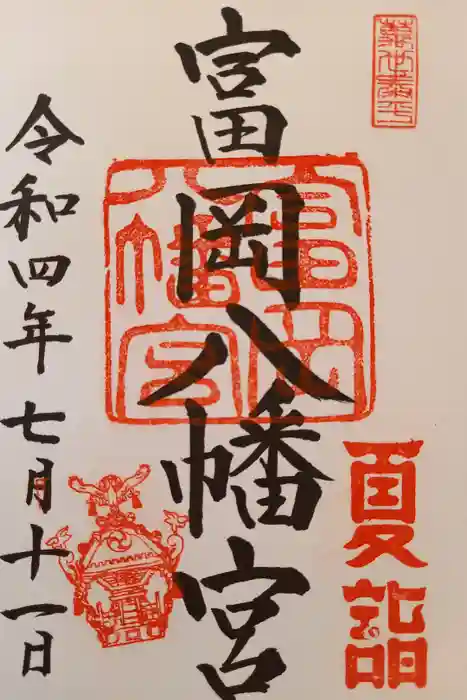 夏詣
富岡八幡宮
富岡
八幡宮
令和四年七月十一日